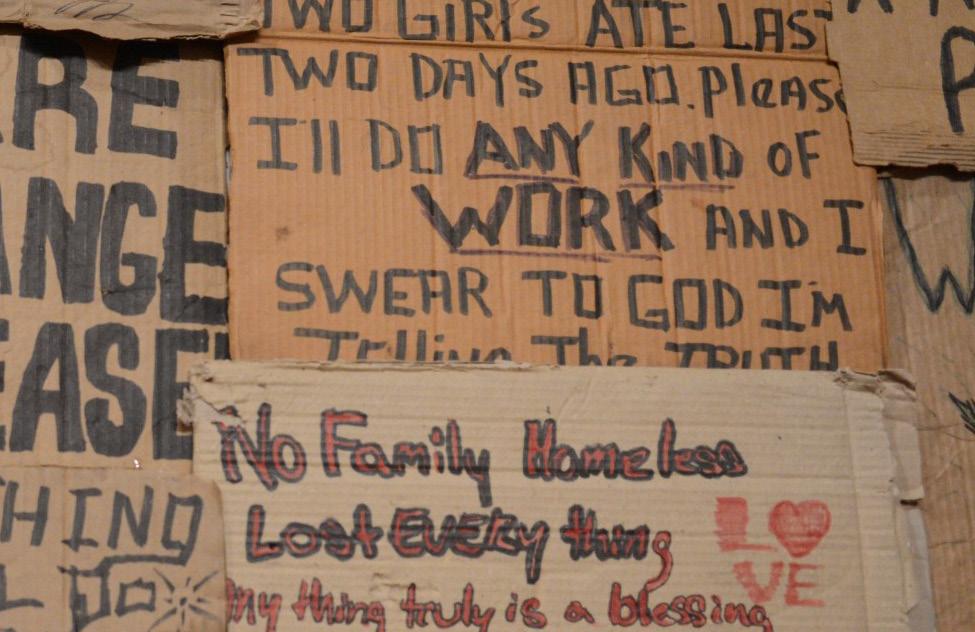 TWO GIRLS ATE LAST
TWO DAYS AGO. Please
I'll DO ANY KIND OF
WORK AND I
SWEAR TO GOD I'M
Telling The TRUTH
RE
ANGE
EASE
HING
L DO
No Family Homeless
Lost EVERY thing
Any thing truly is a blessing
LOVE